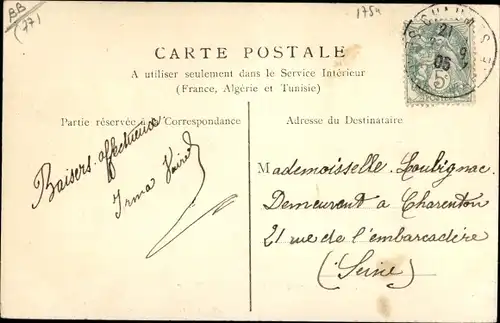 BB
(77)
1754
CHAUMES
21
9
05
5c
CARTE POSTALE
A utiliser seulement dans le Service Intérieur
(France, Algérie et Tunisie)
Partie réservée à la Correspondance
Adresse du Destinataire
Baisers affectueux
Irma
Mademoisselle Loubignac
Demeurent a Charenton
21 rue de l'embarcadère
(Seine)